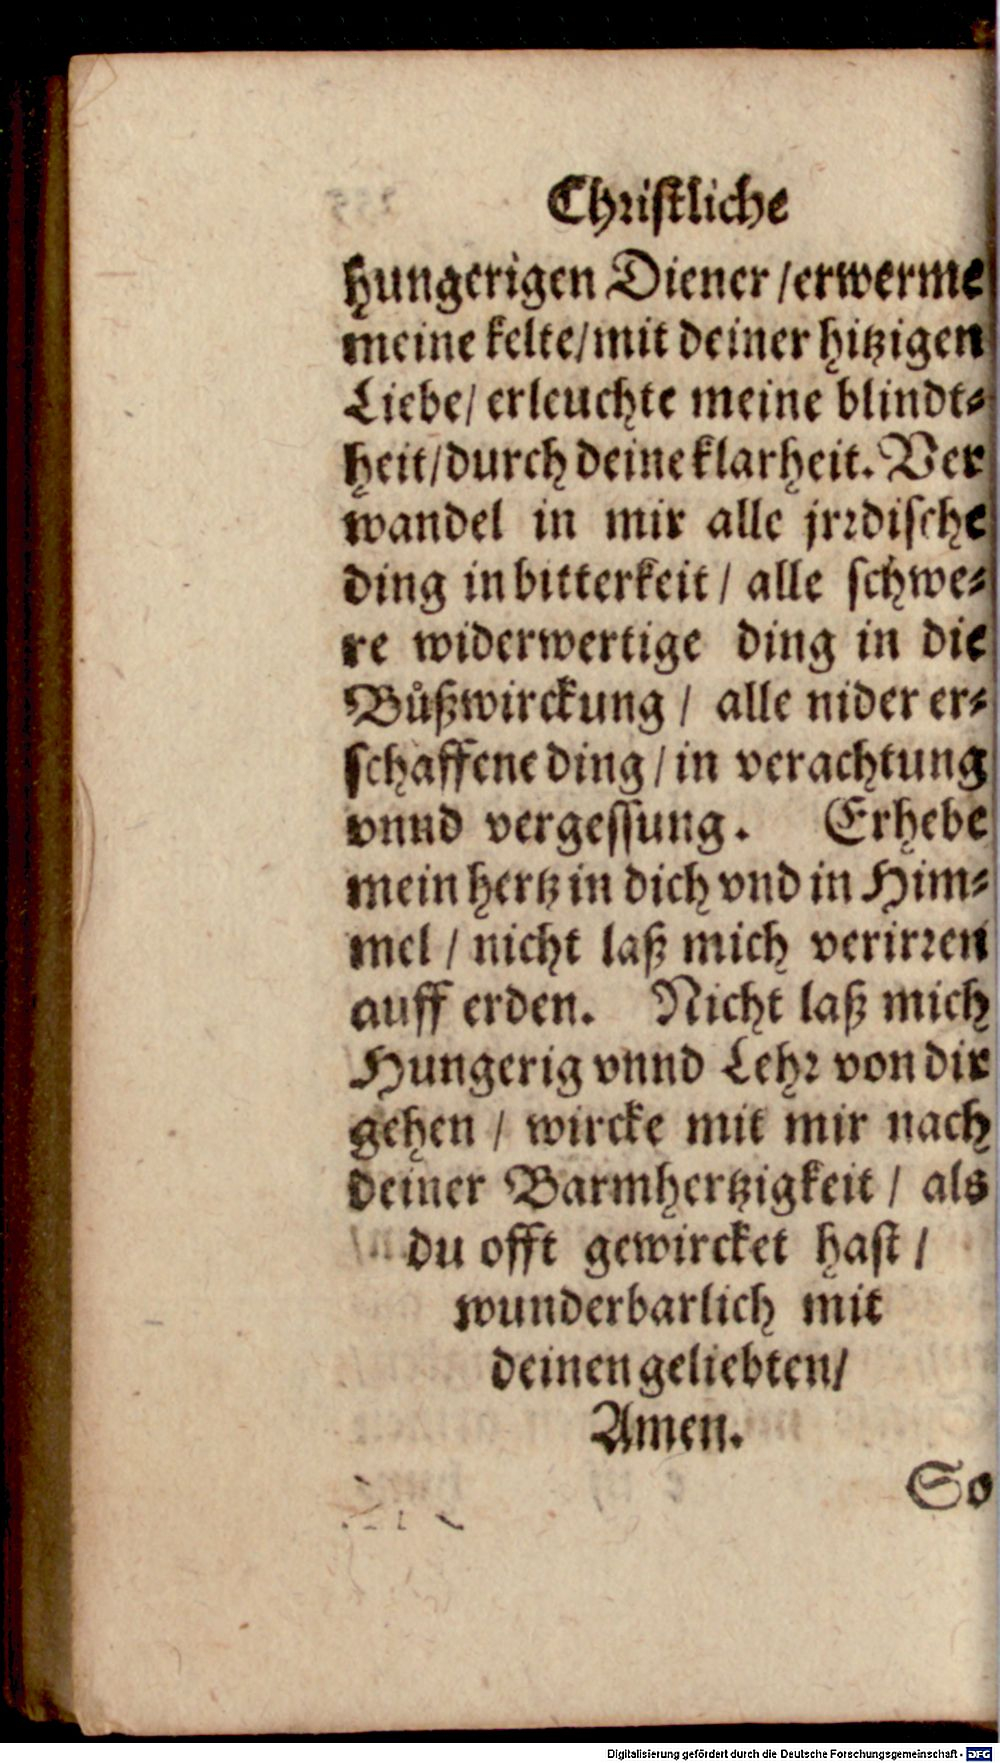 Christliche
hungerigen Diener / erwerme
meine kelte / mit deiner hitzigen
Liebe / erleuchte meine blindt⸗
heit / durch deine klarheit. Ver
wandel in mir alle jrꝛdische
ding in bitterkeit / alle schwe⸗
re widerwertige ding in die
Bůßwirckung / alle nider er⸗
schaffene ding / in verachtung
vnnd vergessung. Erhebe
mein hertz in dich vnd in Him⸗
mel / nicht laß mich verirꝛen
auff erden. Nicht laß mich
Hungerig vnnd Lehꝛ von dir
gehen / wircke mit mir nach
deiner Barmhertzigkeit / als
du offt gewircket hast /
wunderbarlich mit
deinen geliebten /
Amen.
So
Digitalisierung gefördert durch die Deutsche Forschungsgemeinschaft - DFG